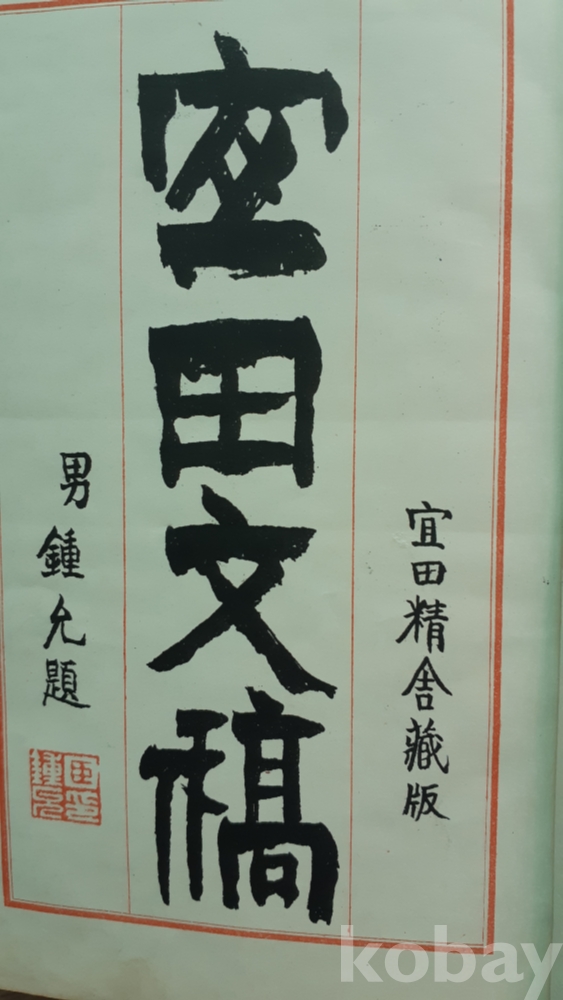 宜田精舍藏版
宜田文稿
男鍾允題
kobay